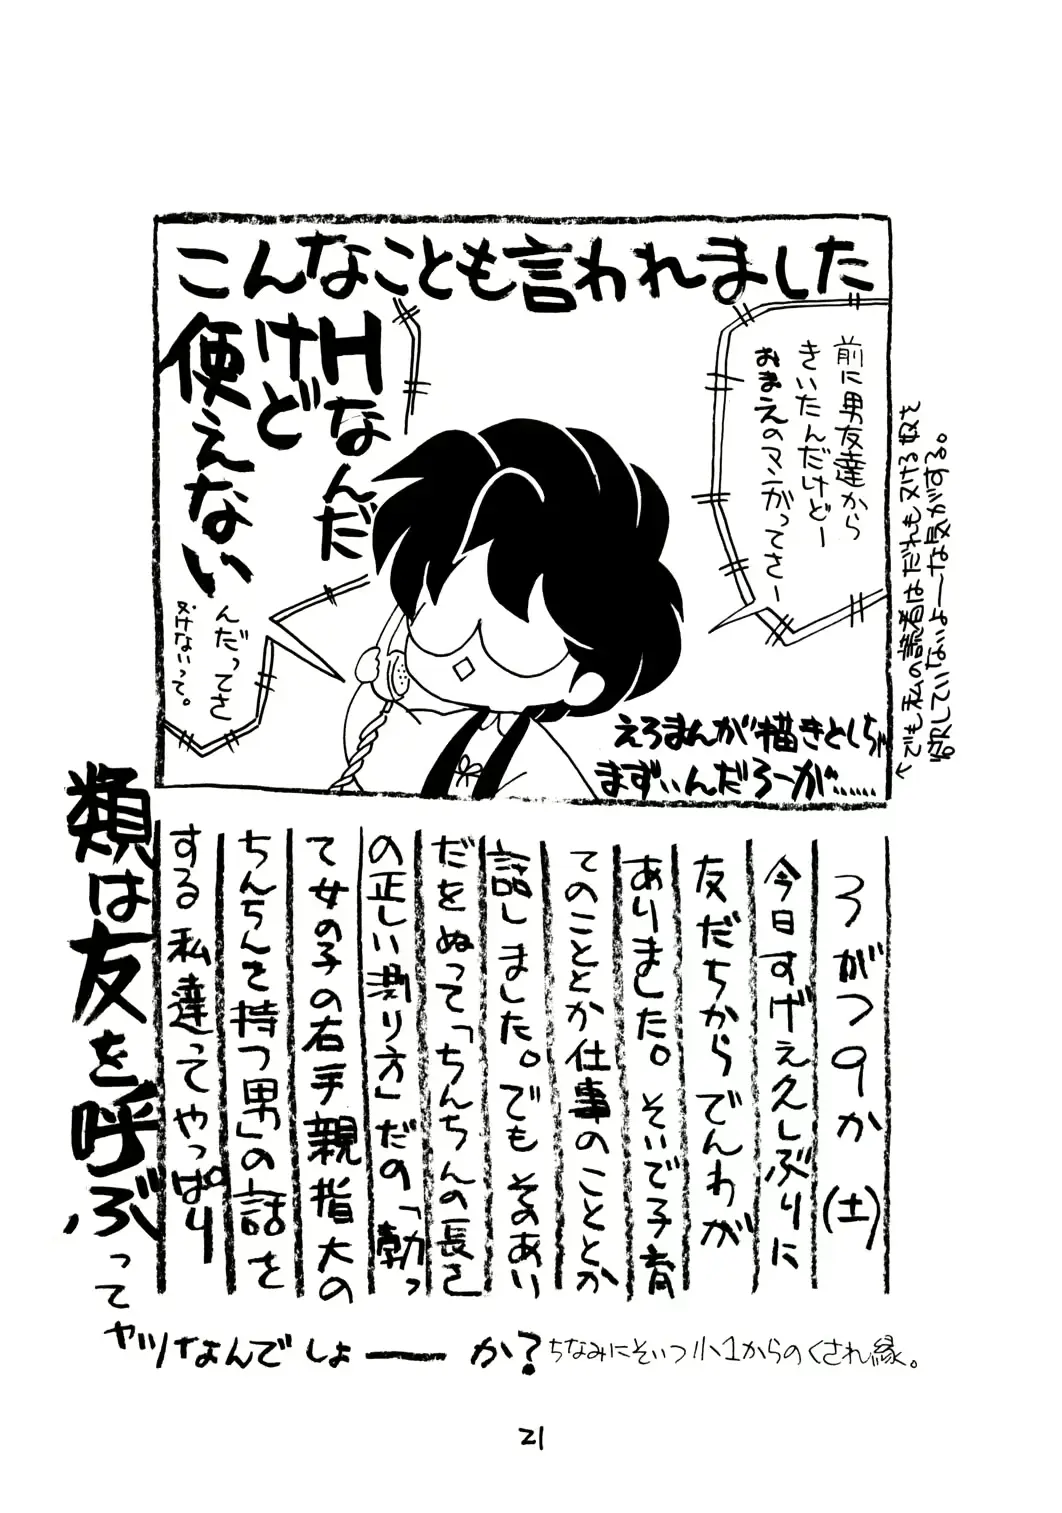 こんなことも言われました
前に男友達から
きいたんだけどー
おまえのマンガってさー
Hなんだ
けど
使えない
んだってさ
ヌけないって。
えろまんが描きとしちゃ
まずいんだろーが……
でも私の読者はだれもヌける奴を
していないよーな気がする。
3がつ9か(土)
今日すげえ久しぶりに
友だちからでんわが
ありました。そいで子育
てのこととか仕事のこととか
話しました。でもそのあい
だをぬって「ちんちんの長さ
の正しい測り方」だの、「勃っ
て女の子の右手親指大の
ちんちんを持つ男」の話を
する私達ってやっぱり
類は友を呼ぶって
ヤツなんでしょーーか?
ちなみにそいつ小1からのくされ縁。
21